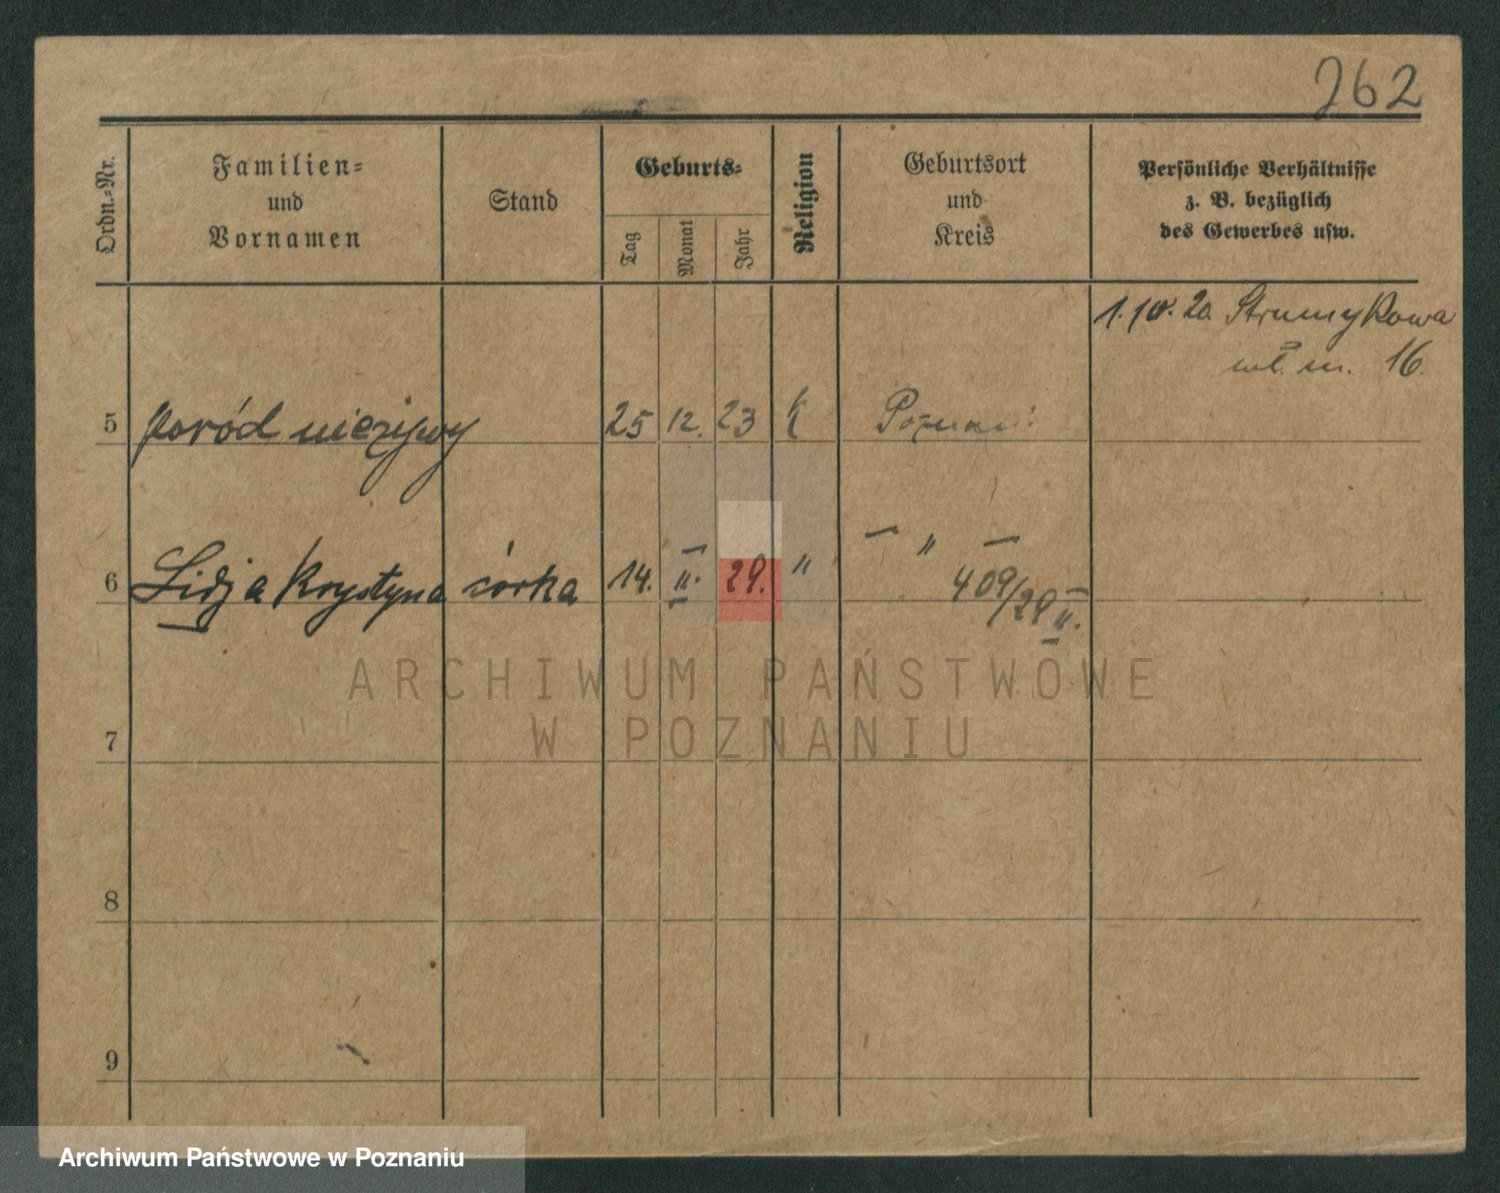 762
Ordn.-Nr.
Familien-
und
Vornamen
Stand
Geburts-
Tag
Monat
Jahr
Religion
Geburtsort
und
Kreis
Persönliche Verhältnisse
z. B. bezüglich
des Gewerbes usw.
20. Strumykowa
m. 16.
5 poród nieżywy 25 12. 23 k Poznań
6 Lidja Krystyna córka 14. II. 29. " — " —
409/29 II.
7
8
9
ARCHIWUM PAŃSTWOWE
W POZNANIU
Archiwum Państwowe w Poznaniu